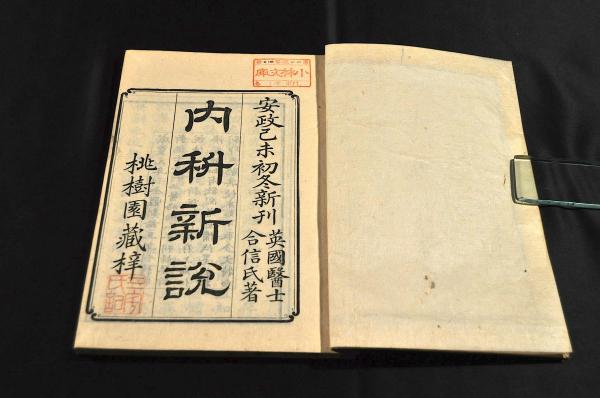 安政己未初冬新刊
英國醫士
合信氏著
內科新說
桃樹園藏梓
小林文庫